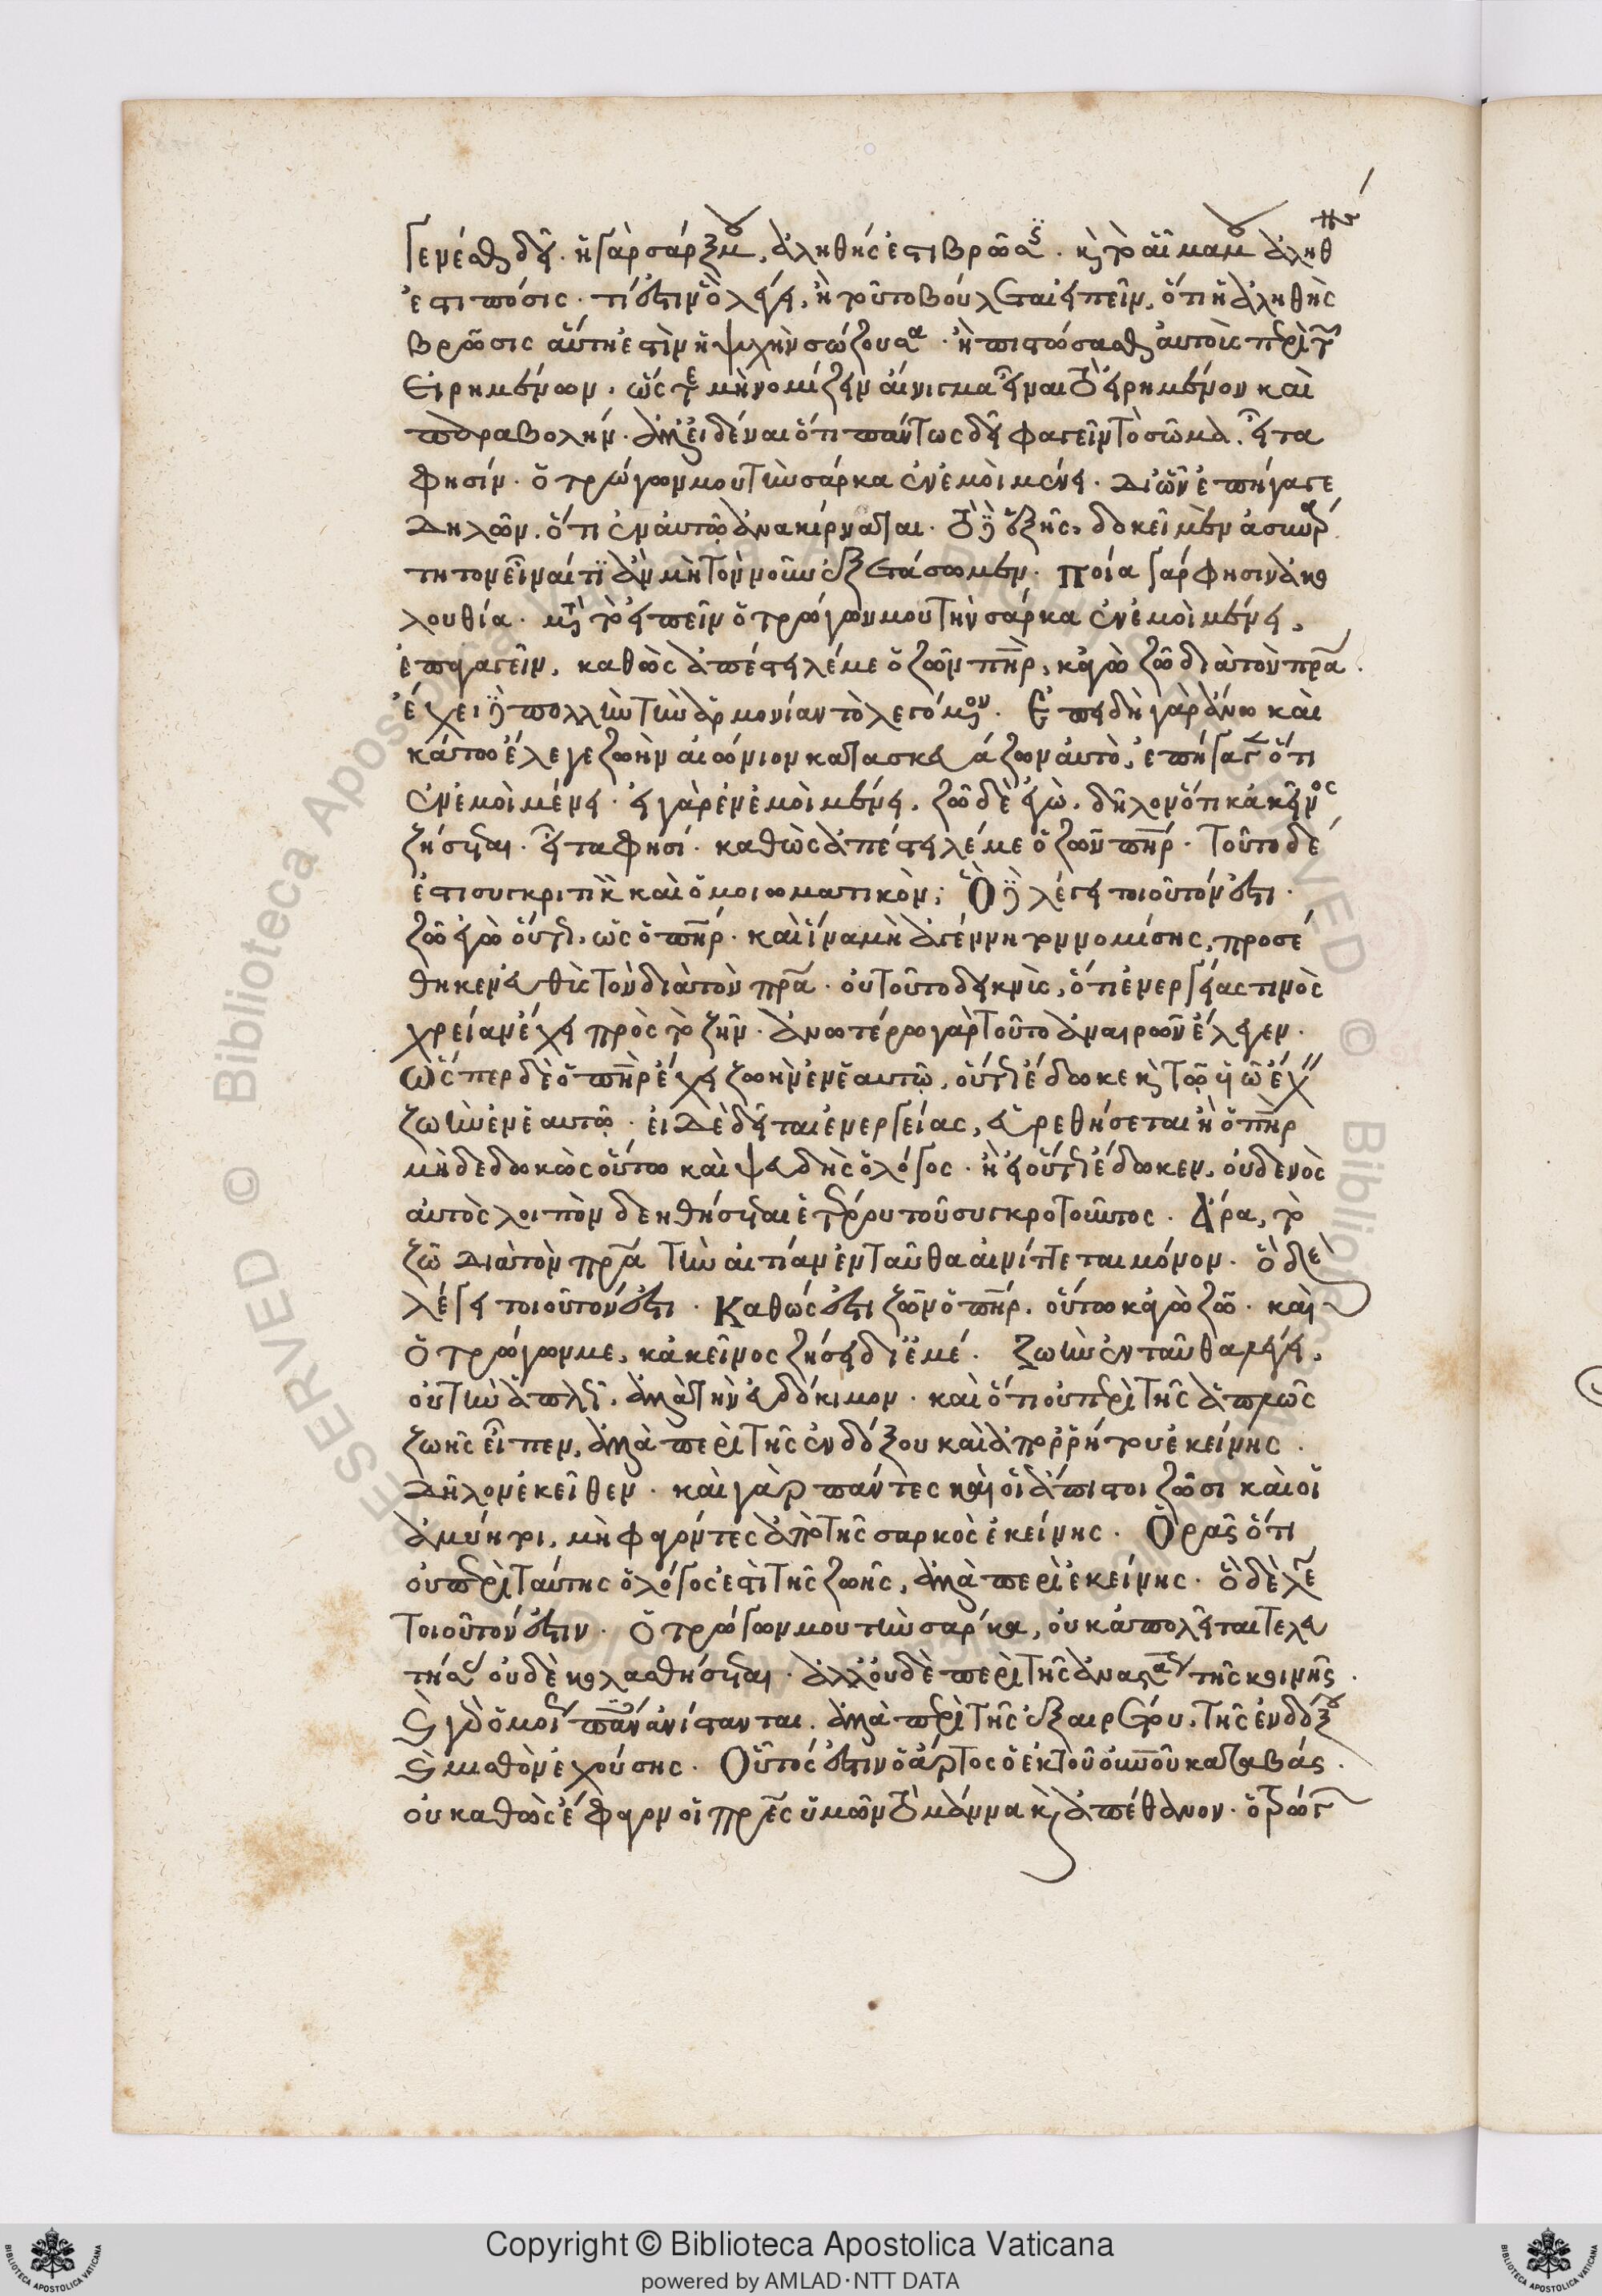 γενέσθαι δεῖ. ἡ γὰρ σάρξ μου, ἀληθής ἐστι βρῶσις. καὶ τὸ αἷμα μου ἀληθής
ἐστι πόσις. τί ἐστιν ὃ λέγει, ἢ τοῦτο βούλεται εἰπεῖν, ὅτι ἡ ἀληθὴς
βρῶσις αὕτη ἐστὶν ἡ ψυχὴν σώζουσα. ἢ πιστώσασθαι αὐτοὺς περὶ τῶν
εἰρημένων. ὥστε μὴ νομίζειν αἴνιγμα εἶναι τὸ εἰρημένον καὶ
παραβολήν. ἀλλ' εἰδέναι ὅτι πάντως δεῖ φαγεῖν τὸ σῶμα. εἶτα
φησίν. ὁ τρώγων μου τὴν σάρκα ἐν ἐμοὶ μένει. δι' ὧν ἐπήγαγε
δηλῶν, ὅτι ἐν αὐτῷ ἀνακίρναται. τὸ δὲ ἑξῆς, δοκεῖ μὲν ἀσυνάρ
τητον εἶναί τι ἂν μὴ τὸν νοῦν ἐξετάσωμεν. ποία γάρ φησιν ἀκο
λουθία. μετὰ τὸ εἰπεῖν ὁ τρώγων μου τὴν σάρκα ἐν ἐμοὶ μένει,
ἐπαγαγεῖν, καθὼς ἀπέστειλέ με ὁ ζῶν πηρ, κἀγὼ ζῶ διὰ τὸν πρα.
ἔχει δὲ πολλὴν τὴν ἁρμονίαν τὸ λεγόμενον. Ἐπειδὴ γὰρ ἄνω καὶ
κάτω ἔλεγε ζωὴν αἰώνιον κατασκευάζων αὐτὸ, ἐπήγαγεν ὅτι
ἐν ἐμοὶ μένει. εἰ γὰρ ἐν ἐμοὶ μένει, ζῶ δὲ ἐγὼ, δῆλον ὅτι κἀκεῖνος
ζήσεται. εἶτα φησί. καθὼς ἀπέστειλέ με ὁ ζῶν πηρ. Τοῦτο δέ
ἐστι συγκριτικὸν καὶ ὁμοιωματικόν; Ὃ δὲ λέγει τοιοῦτόν ἐστι.
ζῶ ἐγὼ οὕτως, ὡς ὁ πηρ. καὶ ἵνα μὴ ἀγέννητον νομίσης, προσέ
θηκεν εὐθὺς τὸν διὰ τὸν πρα. οὐ τοῦτο δεικνὺς, ὅτι ἐνεργείας τινὸς
χρείαν ἔχει πρὸς τὸ ζῆν. ἀνωτέρω γὰρ τοῦτο ἀναιρῶν ἔλεγεν.
ὥσπερ δὲ ὁ πηρ ἔχει ζωὴν ἐν ἑαυτῷ, οὕτως ἔδωκε καὶ τῷ υἱῷ ἔχειν
ζωὴν ἐν ἑαυτῷ. εἰ δὲ δεῖται ἐνεργείας, εὑρεθήσεται ἢ ὁ πηρ
μὴ δεδωκὼς οὕτω καὶ ψευδὴς ὁ λόγος. ἢ εἰ οὕτως ἔδωκεν, οὐδενὸς
αὐτὸς λοιπὸν δεηθήσεται ἑτέρου τοῦ συγκροτοῦντος. Ἄρα, τὸ
ζῶ διὰ τὸν πρα τὴν αἰτίαν ἐνταῦθα αἰνίττεται μόνον. ὃ δὲ
λέγει τοιοῦτόν ἐστι. Καθώς ἐστι ζῶν ὁ πηρ, οὕτω κἀγὼ ζῶ. καὶ
ὁ τρώγων με, κἀκεῖνος ζήσει δι' ἐμέ. Ζωὴν ἐνταῦθα λέγει,
οὐ τὴν ἁπλῶς, ἀλλὰ τὴν εὐδόκιμον. καὶ ὅτι οὐ περὶ τῆς ἁπλῶς
ζωῆς εἶπεν, ἀλλὰ περὶ τῆς ἐνδόξου καὶ ἀπορρήτου ἐκείνης.
δῆλον ἐκεῖθεν. καὶ γὰρ πάντες καὶ οἱ ἄπιστοι ζῶσι καὶ οἱ
ἀμύητοι, μὴ φαγόντες ἀπὸ τῆς σαρκὸς ἐκείνης. Ὁρᾷς ὅτι
οὐ περὶ ταύτης ὁ λόγος ἐστὶ τῆς ζωῆς, ἀλλὰ περὶ ἐκείνης. ὃ δὲ λέγει
τοιοῦτόν ἐστιν. Ὁ τρώγων μου τὴν σάρκα, οὐκ ἀπολεῖται τελευ
τήσας οὐδὲ κολασθήσεται. ἀλλ' οὐδὲ περὶ τῆς ἀναστάσεως τῆς κοινῆς.
καὶ γὰρ ὁμοίως πάντες ἀνίστανται. ἀλλὰ περὶ τῆς ἐξαιρέτου, τῆς ἐνδόξου
καὶ μισθὸν ἐχούσης. Οὗτός ἐστιν ὁ ἄρτος ὁ ἐκ τοῦ οὐνοῦ καταβάς.
οὐ καθὼς ἔφαγον οἱ πρες ὑμῶν τὸ μάννα καὶ ἀπέθανον. ὁ τρώγων